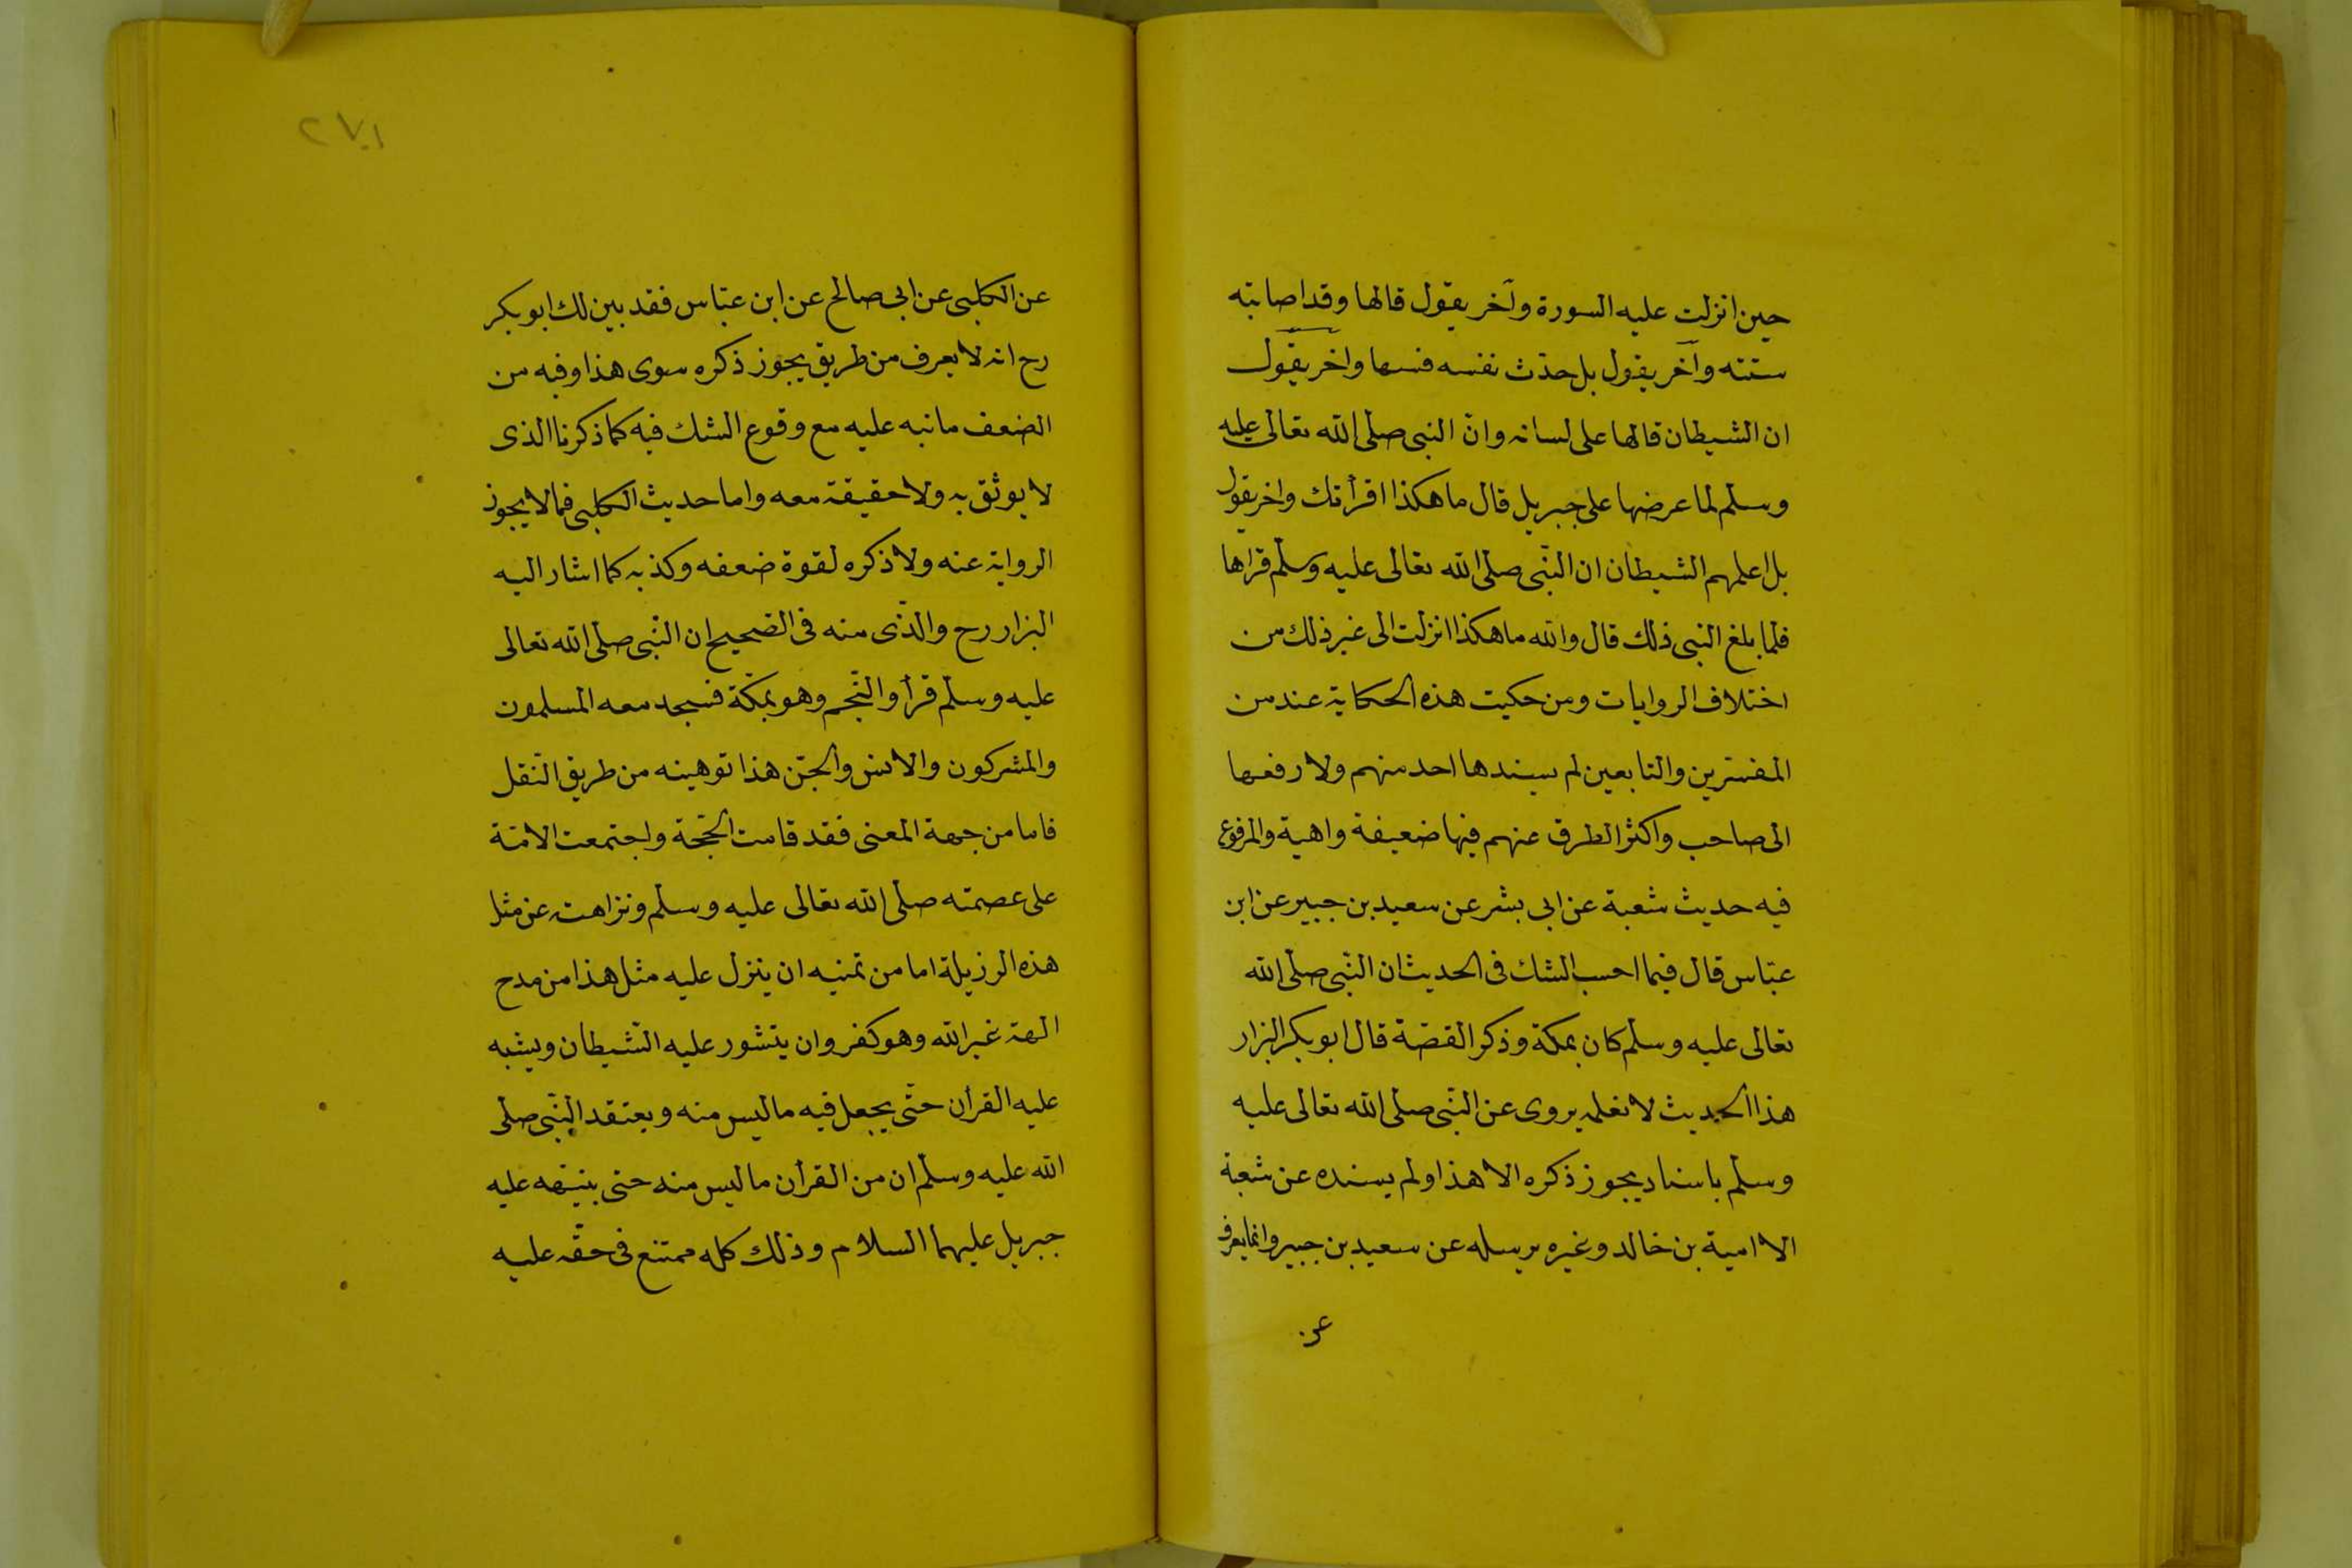 حين انزلت عليه السورة وآخر يقول قالها وقد اصابته
سنته وآخر يقول بل حدث نفسه فسها واخر يقول
ان الشيطان قالها على لسانه وان النبى صلى الله تعالى عليه
وسلم لما عرضها على جبريل قال ما هكذا اقرأتك واخر يقول
بل اعلمهم الشيطان ان النبى صلى الله تعالى عليه وسلم قراها
فلما بلغ النبى ذلك قال والله ما هكذا انزلت الى غير ذلك من
اختلاف الروايات ومن حكيت هذه الحكاية عند من
المفسرين والتابعين لم يسندها احد منهم ولا رفعها
الى صاحب واكثر الطرق عنهم فيها ضعيفة واهية والمرفوع
فيه حديث شعبة عن ابى بشر عن سعيد بن جبير عن ابن
عباس قال فيما احسب الشك فى الحديث ان النبى صلى الله
تعالى عليه وسلم كان بمكة وذكر القصة قال ابو بكر البزار
هذا الحديث لا نعلمه يروى عن النبى صلى الله تعالى عليه
وسلم باسناد يجوز ذكره الا هذا ولم يسنده عن شعبة
الا امية بن خالد وغيره يرسله عن سعيد بن جبير وانما يعرف
عن
٢٧١
عن الكلبى عن ابى صالح عن ابن عباس فقد بين لك ابو بكر
رح انه لا يعرف من طريق يجوز ذكره سوى هذا وفيه من
الضعف ما نبه عليه مع وقوع الشك فيه كما ذكرنا الذى
لا يوثق به ولا حقيقة معه واما حديث الكلبى فمالا يجوز
الرواية عنه ولا ذكره لقوة ضعفه وكذبه كما اشار اليه
البزار رح والذى منه فى الصحيح ان النبى صلى الله تعالى
عليه وسلم قرأ والنجم وهو بمكة فسجد معه المسلمون
والمشركون والانس والجن هذا توهينه من طريق النقل
فاما من جهة المعنى فقد قامت الحجة واجتمعت الامة
على عصمته صلى الله تعالى عليه وسلم ونزاهته عن مثل
هذه الرزيلة اما من تمنيه ان ينزل عليه مثل هذا من مدح
الهة غير الله وهو كفر وان يتشور عليه الشيطان ويشبه
عليه القرأن حتى يجعل فيه ما ليس منه ويعتقد النبى صلى
الله عليه وسلم ان من القرأن ما ليس منه حتى ينبهه عليه
جبريل عليهما السلام وذلك كله ممتنع فى حقه عليه